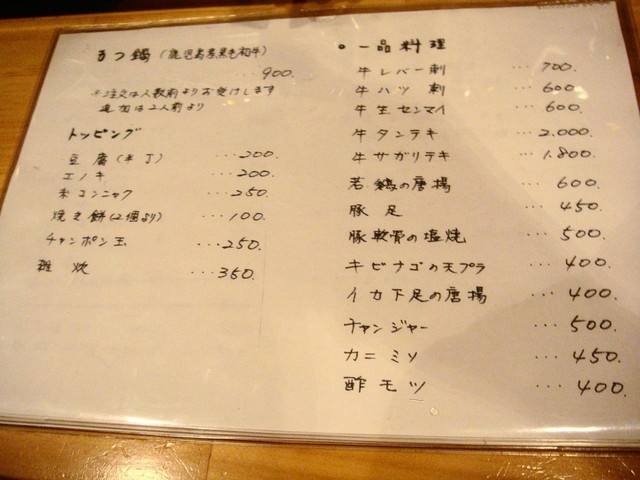 もつ鍋(鹿児島産黒毛和牛)
...900.
※注文は人数前よりお受けします
追加は2人前より
トッピング
豆腐(半丁) ...200.
エノキ ...200.
糸コンニャク ...250.
焼き餅(2個より) ...100.
チャンポン玉 ...250.
雑炊 ...350.
○一品料理
牛レバー刺 ...700.
牛ハツ刺 ...600.
牛生センマイ ...600.
牛タンテキ ...2.000.
牛サガリテキ ...1.800.
若鶏の唐揚 ...600.
豚足 ...450.
豚軟骨の塩焼 ...500.
キビナゴの天プラ ...400.
イカ下足の唐揚 ...400.
チャンジャー ...500.
カニミソ ...450.
酢モツ ...400.